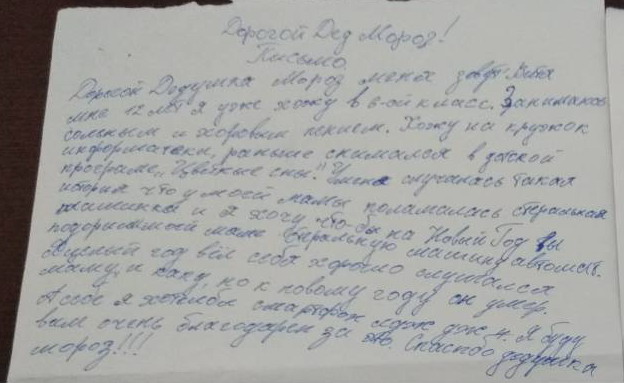 Дорогой Дед Мороз!
Письмо
Дорогой Дедушка Мороз меня зовут Витя
мне 12 лет я уже хожу в 6-ой класс. Занимаюсь
сольным и хоровым пением. Хожу на кружок
информатики, раньше снимался в детской
програме „Цветные сны." У меня случилась такая
история что у моей мамы поламалась стеральная
машинка и я хочу что-бы на Новый Год вы
моей маме стеральную машину автомат.
Я целый год вёл себя хорошо слушался
маму, и папу, но к новому году он умер.
А себе я хотелбы смартфон 4. Я буду
вам очень благодарен за это. Спасибо дедушка
мороз!!!